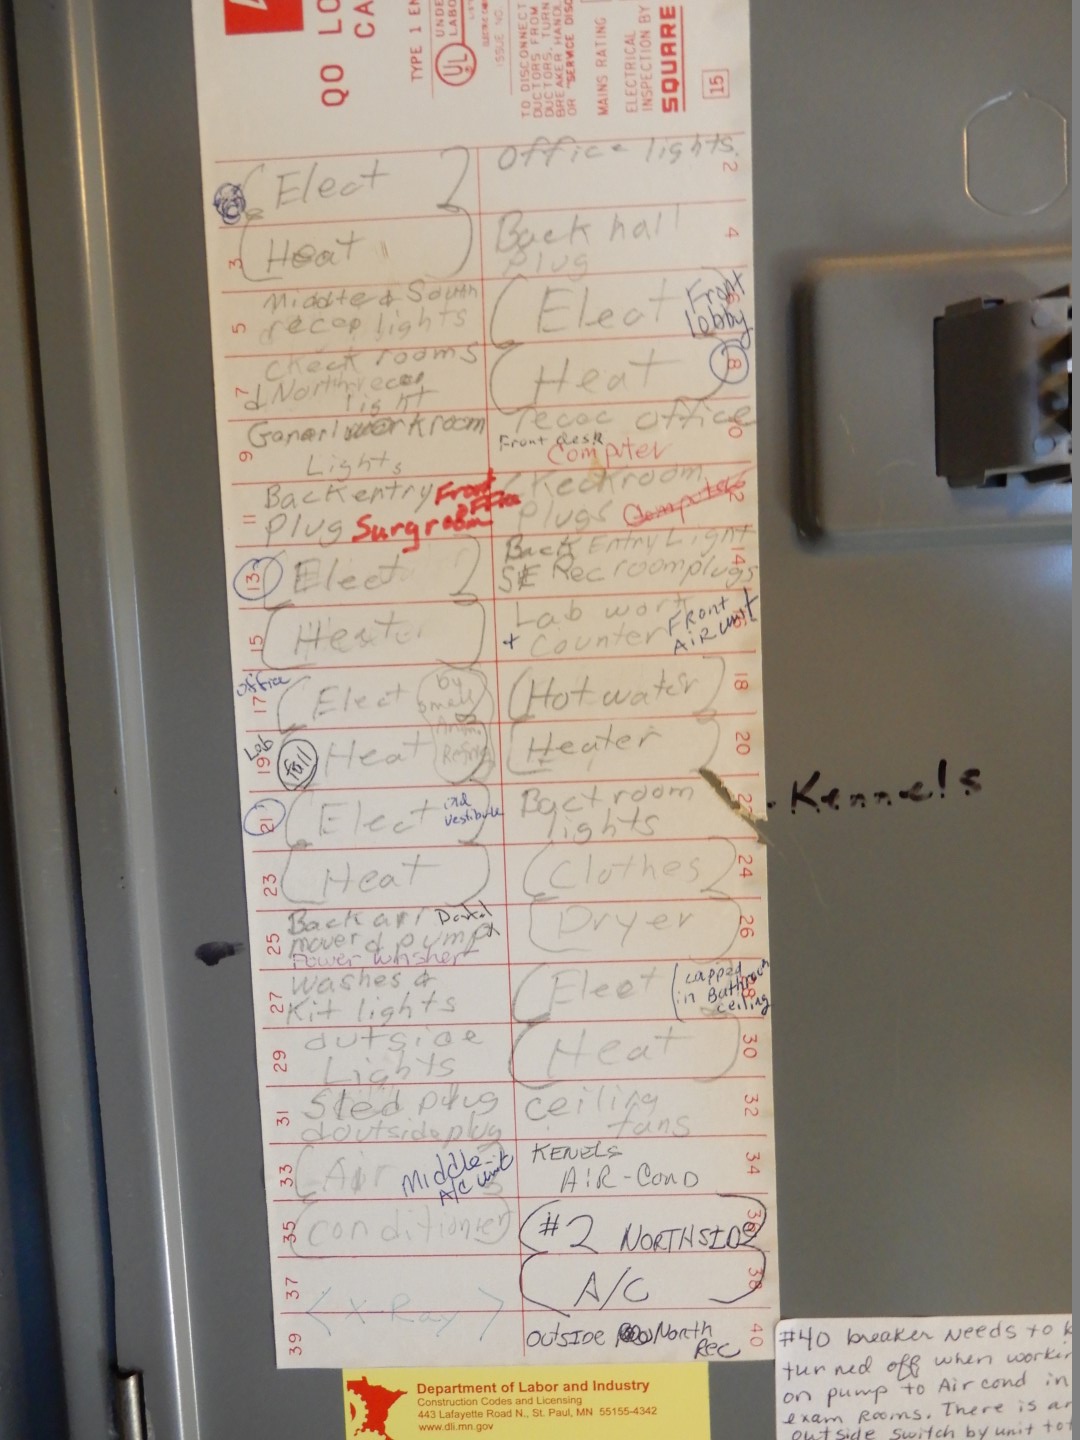 QO LO
CA
TYPE 1 EN
UL
UNDE
LABO
ISSUE NO.
TO DISCONNECT
DUCTORS FROM
DUCTORS, TURN
BREAKER HANDL
OR "SERVICE DISC
MAINS RATING
ELECTRICAL
INSPECTION BY
SQUARE
15
Elect
Office lights
2
3
Heat
Back hall
plug
4
5
Middle & South
recop lights
Elect
Front
Lobby
6
7
Check rooms
d North recop
light
Heat
8
9
Generl workroom
Lights
recoc office
Front desk
Computer
10
11
Back entry
Plug
Front
office
Surg room
Checkroom
Plugs
Computer
12
13
Elect
Back Entry Light
SE Rec roomplugs
14
15
Heat
Lab work
+ Counter
FRONT
AIR UNIT
16
Office
17
Elect
by
small
Anim
Refrig
Hot water
18
Lab
19
Heat
Heater
20
21
Elect
old
vestibule
Back room
lights
22
Kennels
23
Heat
Clothes
24
25
Back ari
mover d pump
Power washer
Dental
X
Dryer
26
27
Washes &
Kit lights
Elect
(capped
in Bathroom
ceiling
28
29
outside
Lights
Heat
30
31
Sled plug
doutside plug
ceiling
fans
32
33
Air
Middle
A/C unit
KENELS
AIR-COND
34
35
conditioner
#2 NORTHSIDE
36
37
A/C
38
39
X-Ray
OUTSIDE North
Rec
40
Department of Labor and Industry
Construction Codes and Licensing
443 Lafayette Road N., St. Paul, MN 55155-4342
www.dli.mn.gov
#40 breaker needs to b
turned off when workin
on pump to Air cond in
exam rooms. There is an
outside switch by unit to